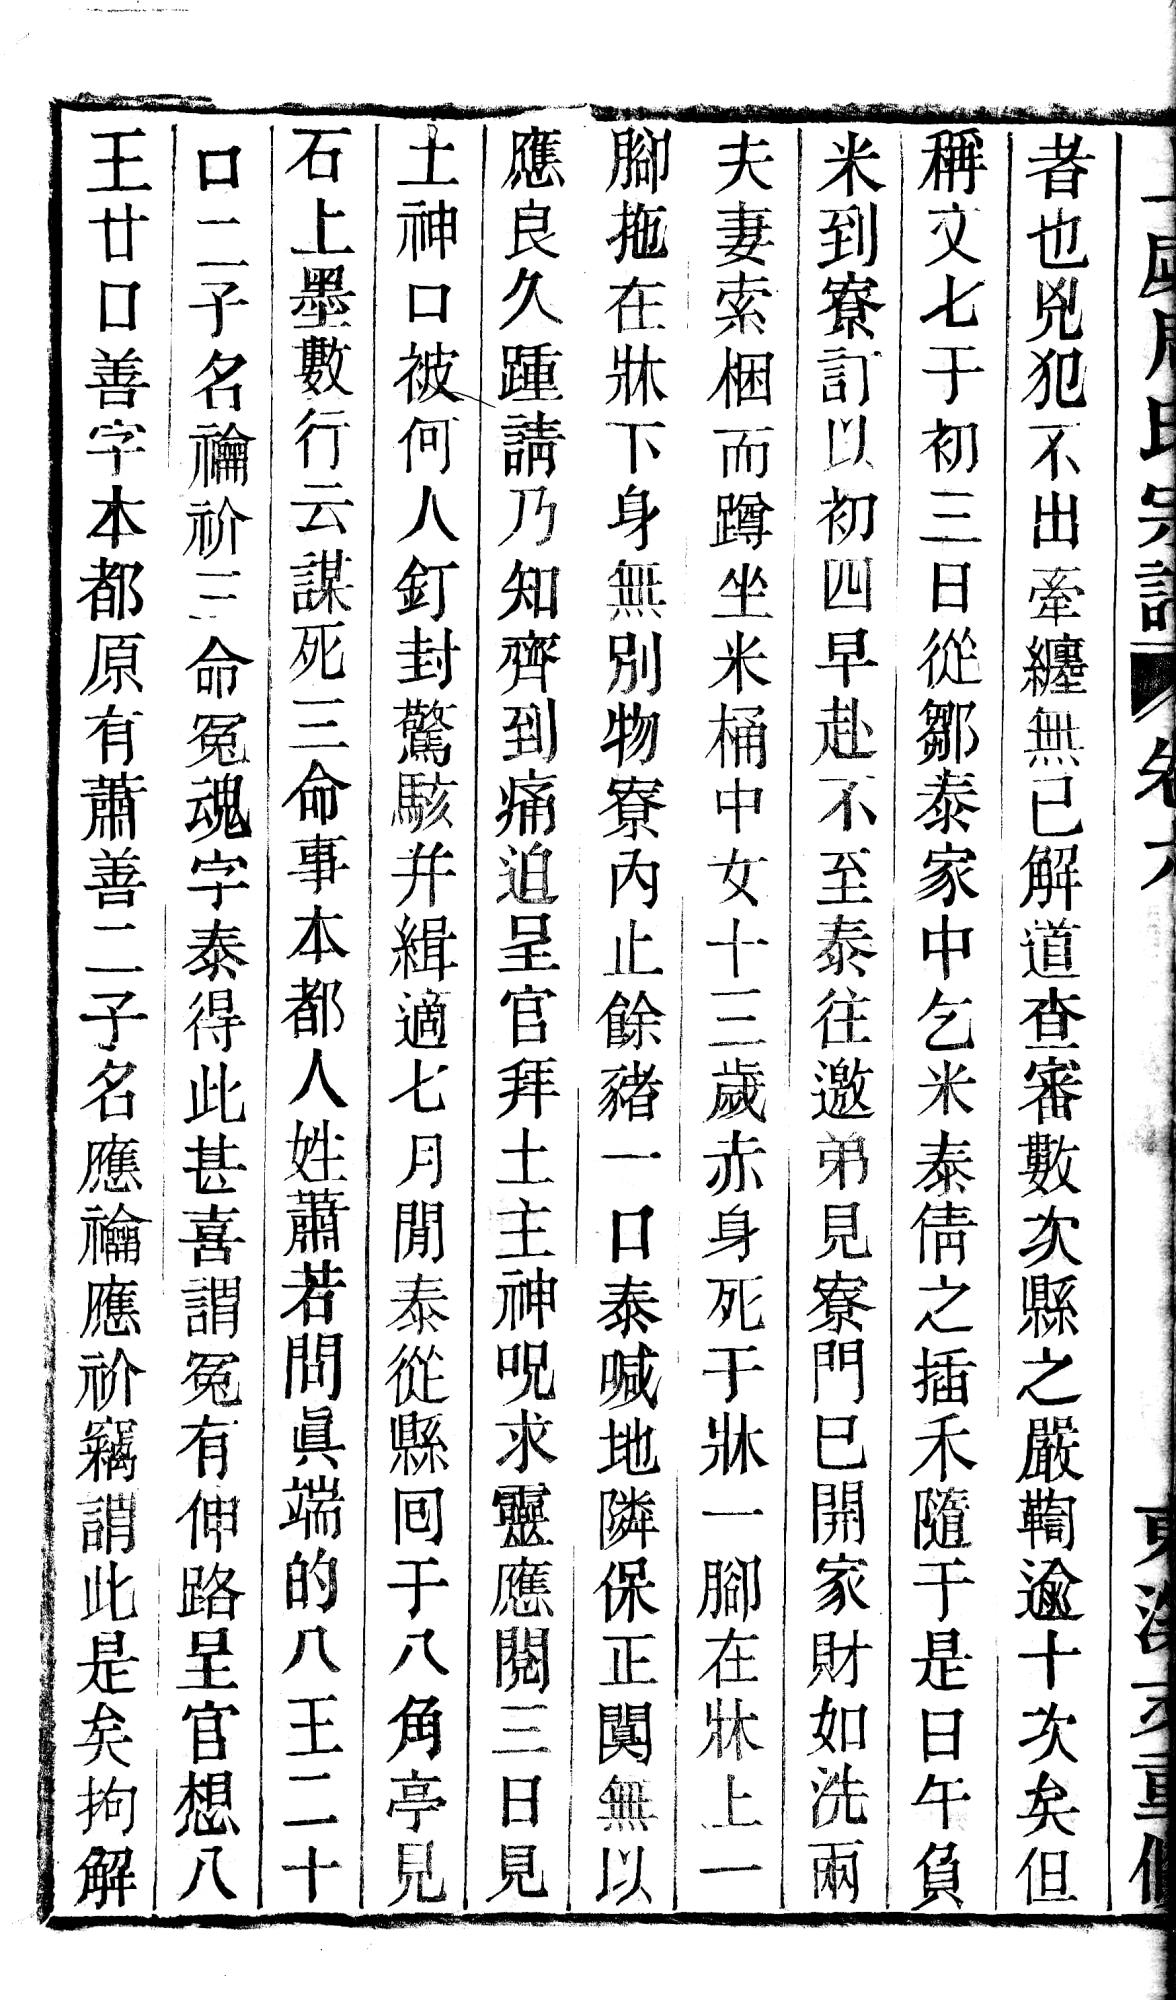 者也兇犯不出牽纏無已解道查審數次縣之嚴鞫逾十次矣但
稱文七于初三日從鄒泰家中乞米泰倩之插禾隨于是日午負
米到寮訂以初四早赴不至泰往邀弟見寮門已開家財如洗兩
夫妻索梱而蹲坐米桶中女十三歲赤身死于牀一腳在牀上一
腳拖在牀下身無別物寮內止餘豬一口泰喊地隣保正闃無以
應良久踵請乃知齊到痛迫呈官拜土主神呪求靈應閱三日見
土神口被何人釘封驚駭幷緝適七月閒泰從縣回于八角亭見
石上墨數行云謀死三命事本都人姓蕭若問眞端的八王二十
口二子名禴祄三命冤魂字泰得此甚喜謂冤有伸路呈官想八
王廿口善字本都原有蕭善二子名應禴應祄竊謂此是矣拘解